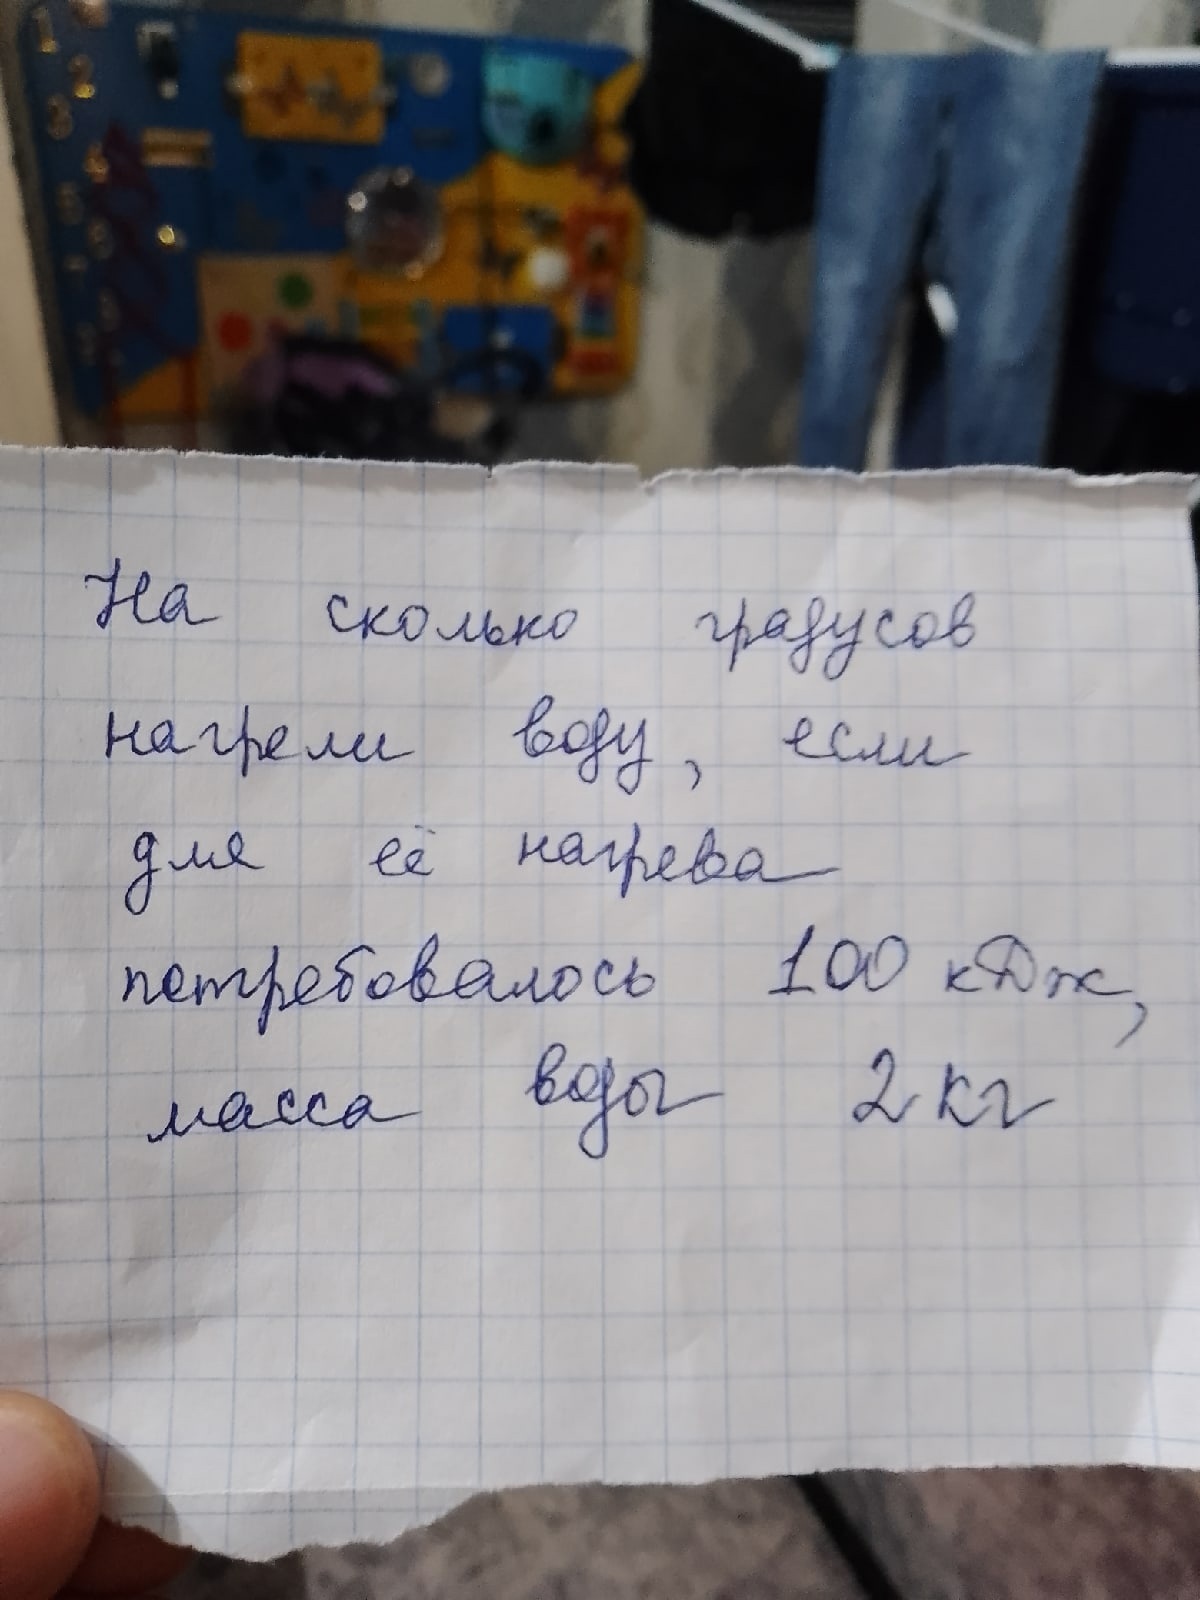 На сколько градусов
нагрели воду, если
для её нагрева
потребовалось 100 кДж,
масса воды 2 кг